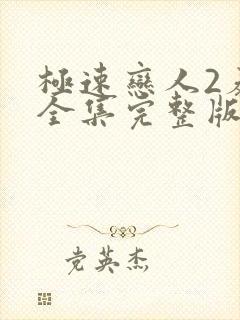 極速戀人2
全集完整版
党英杰